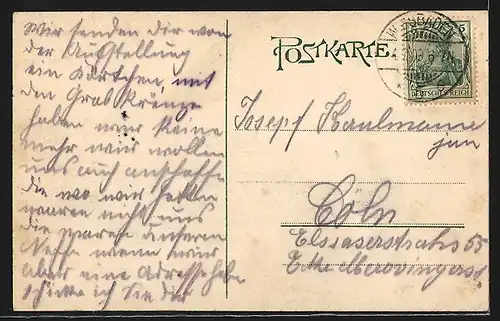 Wir senden dir von
der Ausstellung
ein Kärtchen, mit
den Grab Kränze
haben wir keine
mehr wir wollen
uns auch anschaffe
die wo wir hatten
waren nicht uns
die waren unseren
Neffe wenn wir
aber eine Adresse habe
schicke ich Sie dir
POSTKARTE.
WIESBADEN
5
DEUTSCHES REICH
Josef Kaulmanns
jun
Cöln
Elsaserstrahs 55
Ecke Merovingerst